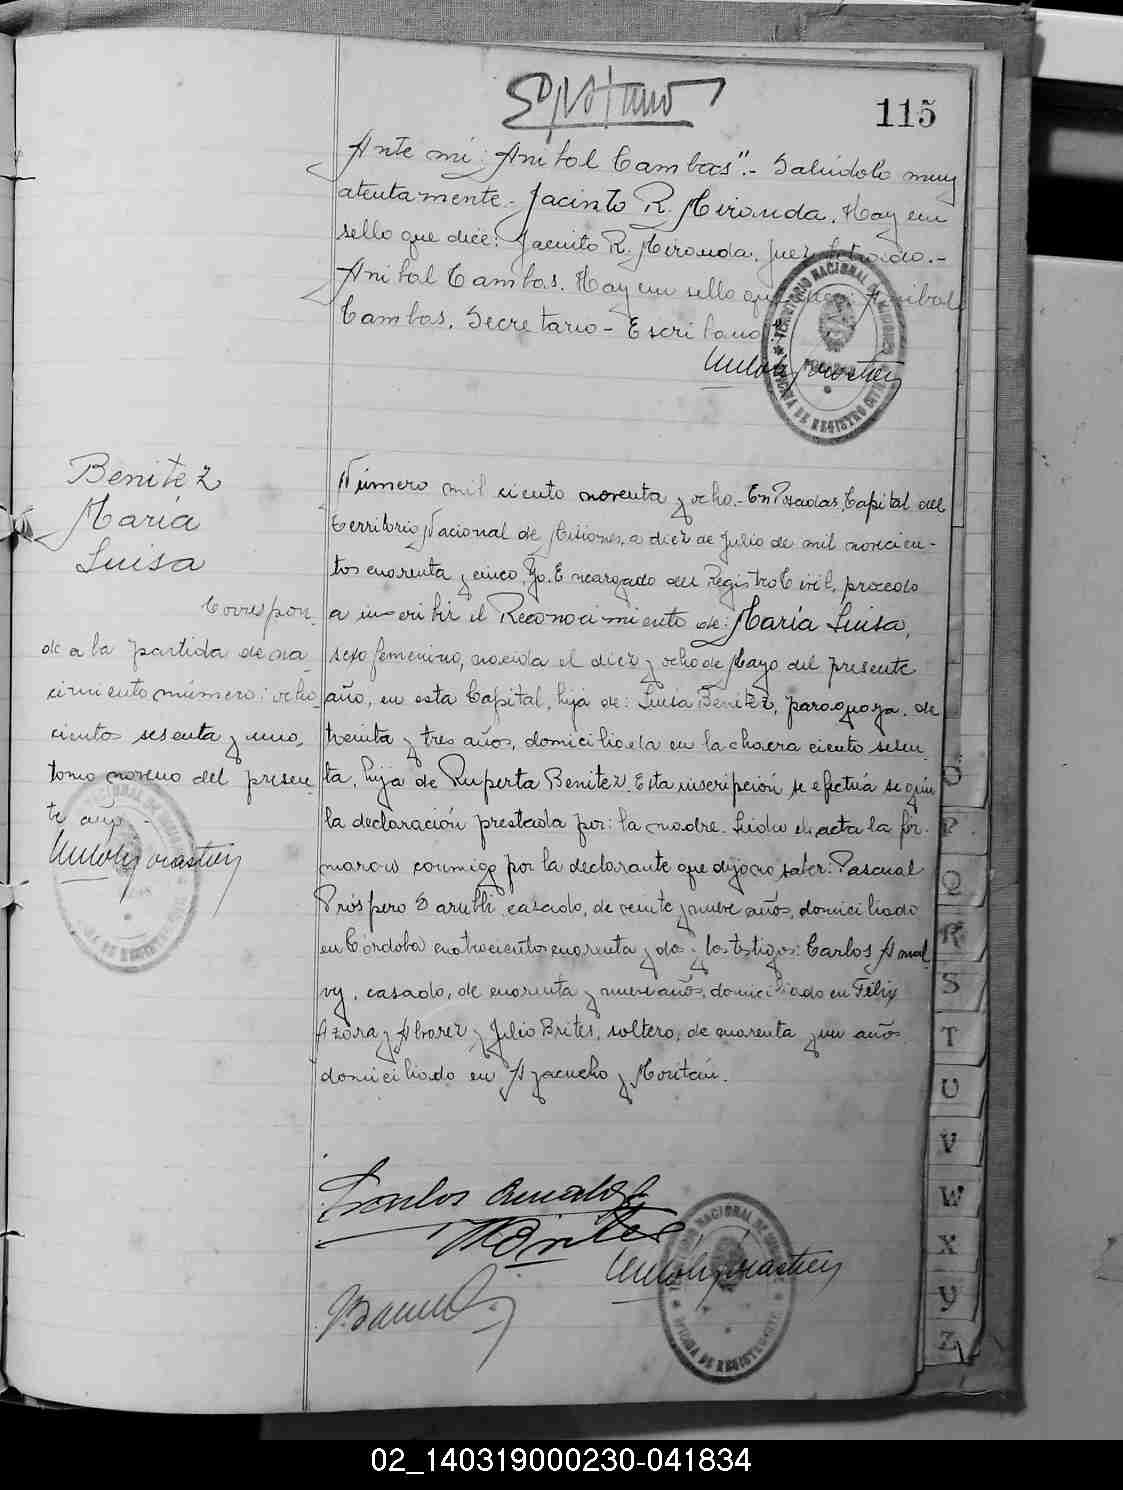 115
Ante mi: Anibal Cambas".- Salúdolo muy
atentamente.- Jacinto R. Miranda. Hay un
sello que dice: Jacinto R. Miranda. Juez Letrado.-
Anibal Cambas. Hay un sello que dice: Anibal
Cambas. Secretario - Escribano".
TERRITORIO NACIONAL DE MISIONES
OFICINA DE REGISTRO CIVIL
Benitez
María
Luisa
Correspon-
de a la partida de na-
cimiento número: ocho
cientos sesenta y uno,
tomo noveno del presen-
te año.-
Número mil ciento noventa y ocho.- En Posadas, Capital del
Territorio Nacional de Misiones, a diez de Julio de mil novecien-
tos cuarenta y cinco, Yo, Encargado del Registro Civil, procedo
a inscribir el Reconocimiento de: María Luisa,
sexo femenino, nacida el diez y ocho de Mayo del presente
año, en esta Capital, hija de: Luisa Benitez, paraguaya, de
treinta y tres años, domiciliada en la chacra ciento sesen-
ta, hija de Ruperta Benitez. Esta inscripción se efectúa según
la declaración prestada por: la madre. Leída el acta la fir-
maron conmigo por la declarante que dijo no saber: Pascual
Próspero Barubbi, casado, de veinte y nueve años, domiciliado
en Córdoba cuatrocientos cuarenta y dos y los testigos: Carlos Amal-
vy, casado, de cuarenta y nueve años, domiciliado en Félix
Azara y Alvarez y Julio Brites, soltero, de cuarenta y un años
domiciliado en Ayacucho y Moritán.
Carlos Amalvy
Brites
TERRITORIO NACIONAL DE MISIONES
OFICINA DE REGISTRO CIVIL
O
P
Q
R
S
T
U
V
W
X
Y
Z
02_140319000230-041834